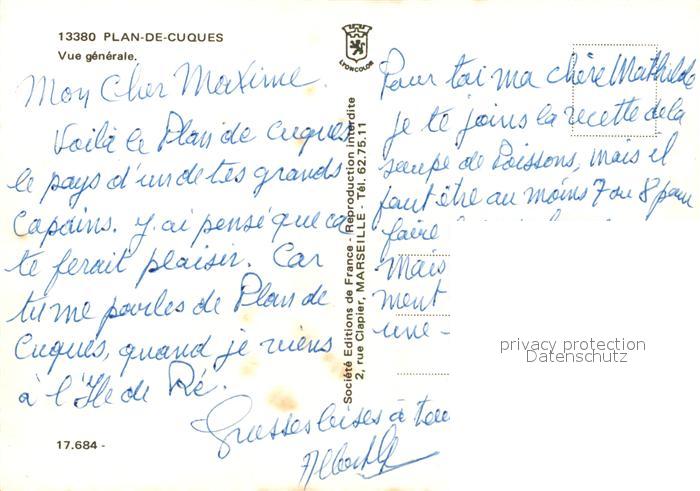 13380 PLAN-DE-CUQUES
Vue générale.
LYONCOLOR
Mon Cher Maxime.
Voilà le Plan de Cuques
le pays d'un de tes grands
Copains. J'ai pensé que ca
te ferait plaisir. Car
tu me parles de Plan de
Cuques, quand je viens
à l'Ile de Ré.
Grosses bises à tou
17.684 -
Société Editions de France - Reproduction interdite
2, rue Clapier, MARSEILLE - Tél. 62.75.11
Pour toi ma chère Mathilde
je te joins la recette de la
soupe de Poissons, mais il
faut être au moins 7 ou 8 pour
faire
Mais
ment
une -
privacy protection
Datenschutz